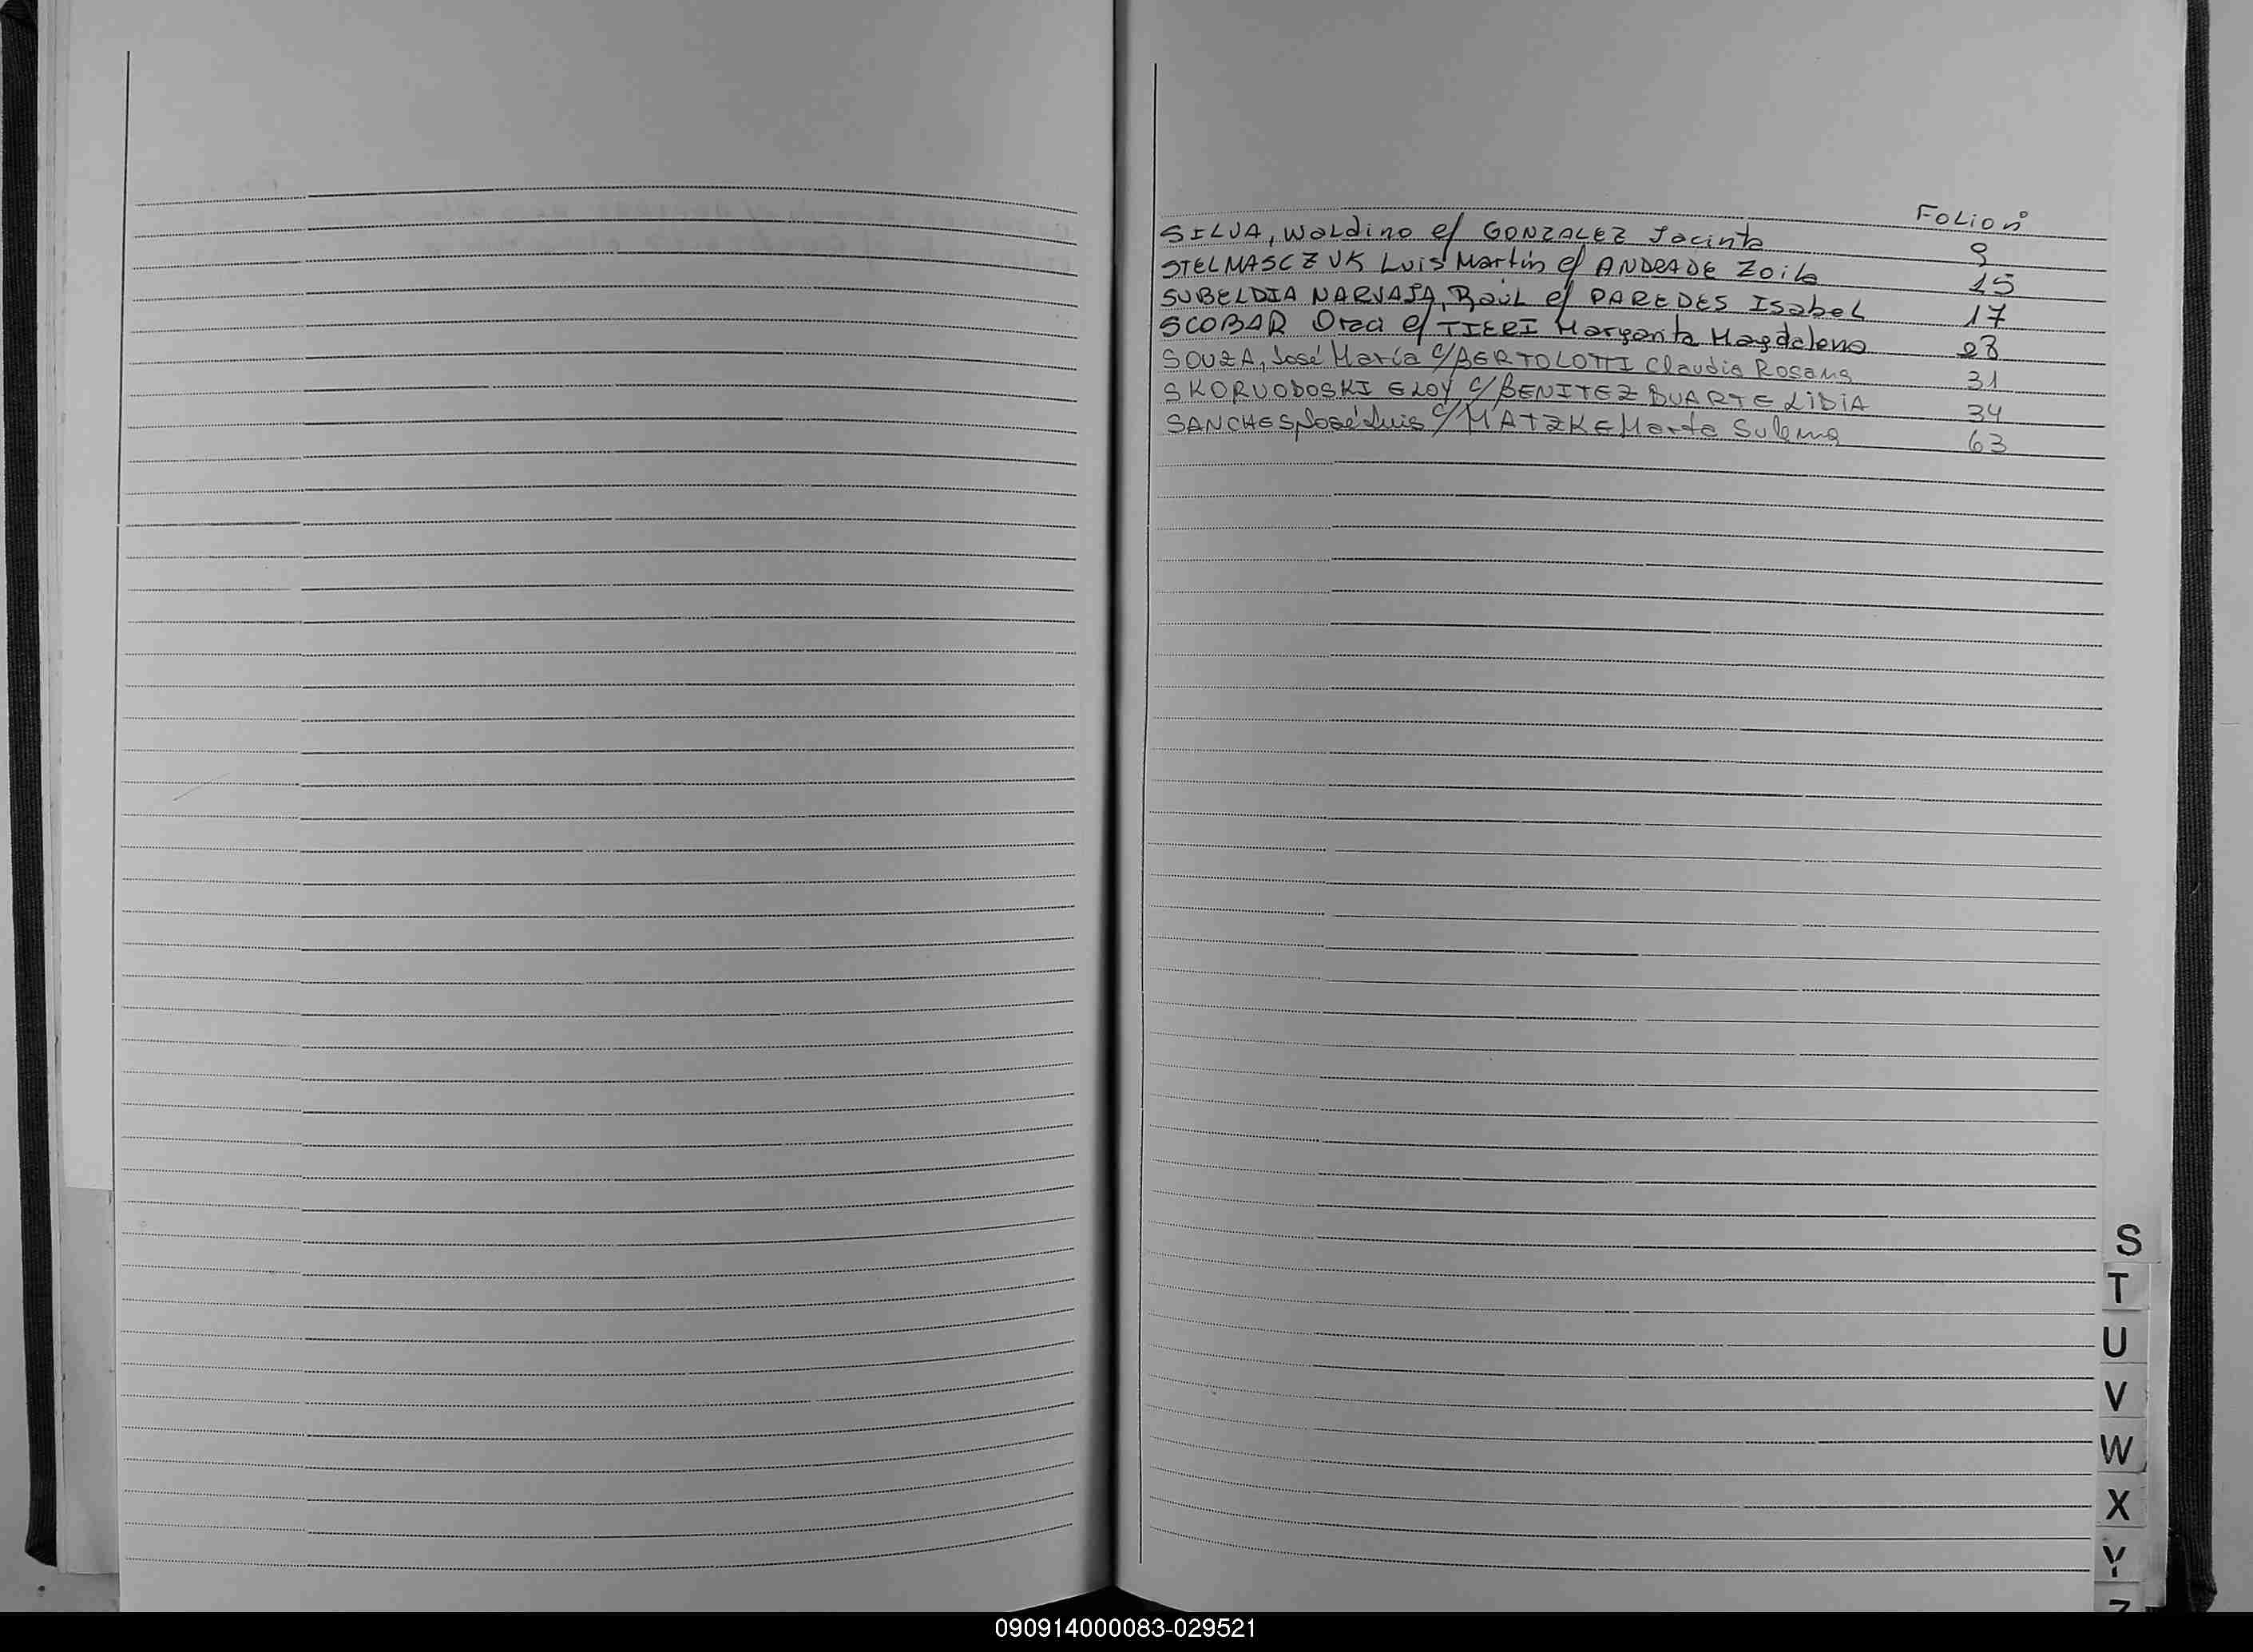 FOLIO nº
SILVA, Waldino c/ GONZALEZ Jacinta 9
STELMASCZUK Luis Martín c/ ANDRADE Zoila 15
SUBELDIA NARVAJA, Raúl c/ PAREDES Isabel 17
SCOBAR Oraci c/ TIERI Margarita Magdalena 28
SOUZA, José María c/ BERTOLOTTI Claudia Rosana 31
SKORVODOSKI ELOY c/ BENITEZ DUARTE LIDIA 34
SANCHES, José Luis c/ MATZKE Marta Sulema 63
S
T
U
V
W
X
Y
Z
090914000083-029521